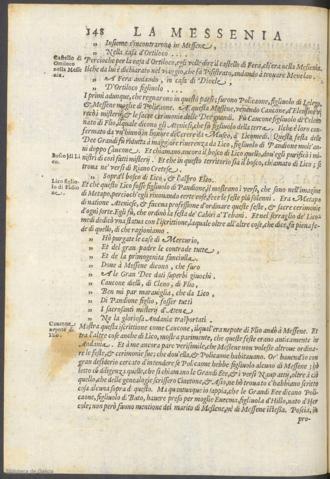 148 LA MESSENIA
„ Insieme s'incontrarono in Messene,
„ Nella casa d'Ortiloco . . . .
Castello di
Ortiloco
nella Messenia.
Percioche per la casa d'Ortiloco, egli volle dire il castello di Fera, ch'era nella Messenia,
ilche da lui è dichiarato nel viaggio, che fà Pisistrato, andando à trouare Menelao.
„ A Fera andando, in casa di Diocle,
„ D'Ortiloco figliuolo . . . .
I primi adunque, che regnarono in questi paesi furono Policaone, figliuolo di Lelego,
& Messene moglie di Policaone. A questa Messene, venendo Caucone, d'Eleusine
misterij & le sacre cerimonie delle Dee grandi. Fù Caucone figliuolo di Celeno,
nato di Flio, ilquale dicono gli Ateniesi, che fù figliuolo della terra.
formato da un'hinno in honore de' Licomedi. Questa festa delle
Dee Grandi fù ridutta à maggiore riuerenza da Lico, figliuolo di Pandione molt'anni
doppo Caucone. Et chiamano ancora il bosco di Lico quello, dou'egli purificò i ministri
di così fatti misterij. Et che in questo territorio sia il bosco, chiamato di Lico, si
troua ne' versi di Riano Cretese.
„ Sopra'l bosco di Lico, & l'aspro Eleo.
Et che questo Lico fosse figliuolo di Pandione, il mostrano i versi, che sono nell'imagine
di Metapo, percioche egli rinouando certe cose, fece le feste più solenni. Era Metapo
di natione Ateniese, & faceua professione d'ordinare queste feste, & sacre cerimonie
d'ogni sorte. Egli fù, che ordinò la festa de' Cabiri a' Tebani. Et nel serraglio de' Licomedi
dedicò vna statua con l'iscrittione, laquale oltre all'altre cose, che dice, fà piena fede
di quello, di che ragioniamo.
„ Hò purgate le case di Mercurio,
„ Et del gran padre le contrade tutte,
„ Et de la primogenita fanciulla.
„ Doue à Messene dicono, che furo
„ A le Gran Dee dati superbi giuochi.
„ Caucone dallì, di Cleno, di Flio,
„ Ben mi par marauiglia, che da Lico,
„ Di Pandione figlio, fosser tutti
„ I sacrosanti misterij d'Atene
„ Ne la gloriosa Andania trasportati.
Caucone,
nepote di
Flio.
Mostra questa iscrittione come Caucone, ilqual'era nepote di Flio andò à Messene. Et
trà l'altre cose anche di Lico, mostra parimente, che queste feste erano anticamente in
Andania. Et à me ancora pare verisimile, che Messene non volesse altroue ordinare
le feste, & cerimonie sue; che dou'ella, & Policaone habitauano. Or' hauend'io con
gran desiderio cercato d'intendere se Policaone hebbe figliuolo alcuno di Messene; hò
letto cò diligenza quello, che si chiamano le Grandi Eee, & i versi Naupattij, oltre à ciò
quello, che delle genealogie scrissero Cinetone, & Asio, nè hò trouato c'habbiano scritto
cosa alcuna sopra di questo. Ma quantunque io sappia, che le Grandi Eee dicano Policaone,
figliuolo di Buto, hauere preso per moglie Euecme, figliuola d'Hillo, nato d'Hercole;
non però fanno mentione del marito di Messene, nè di Messene istessa. Poscia, in
pro-